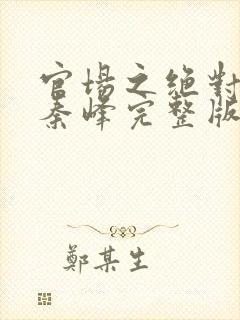 官場之絕對
秦峰完整版
鄭某生